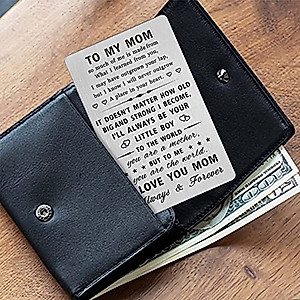 TO MY MOM
so much of me is made from
What I learned from you,
I may have outgrown your lap,
but I know I will never outgrow
A place in your heart.
IT DOESN'T MATTER HOW OLD
BIG AND STRONG I BECOME,
I'LL ALWAYS BE YOUR
LITTLE BOY
TO THE WORLD
you are a mother,
BUT TO ME
you are the world.
I LOVE YOU MOM
Always & Forever